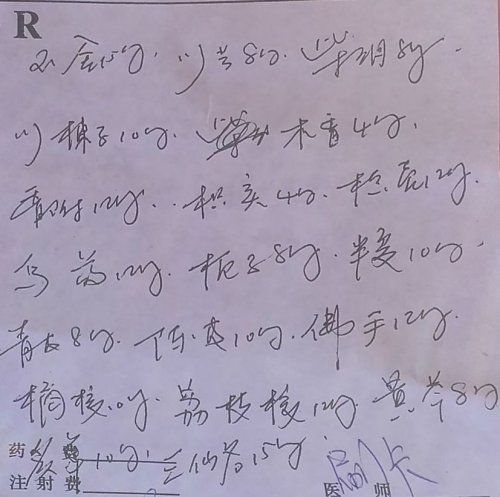 R
金15g. 川芎8g. 柴胡8g.
川楝子10g. 木香4g.
香附12g. 枳实4g. 枳壳12g.
乌药12g. 栀子8g. 半夏10g.
青皮8g. 陈皮10g. 佛手12g.
橘核10g. 荔枝核12g. 黄芩8g
药费 草10g. 三仙各15g.
注射费 医师